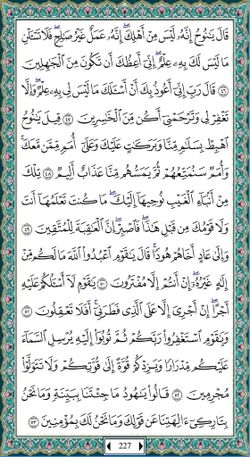 قَالَ يَٰنُوحُ إِنَّهُۥ لَيْسَ مِنْ أَهْلِكَ ۖ إِنَّهُۥ عَمَلٌ غَيْرُ صَٰلِحٍ ۖ فَلَا تَسْـَٔلْنِ
مَا لَيْسَ لَكَ بِهِۦ عِلْمٌ ۖ إِنِّىٓ أَعِظُكَ أَن تَكُونَ مِنَ ٱلْجَٰهِلِينَ
٤٦ قَالَ رَبِّ إِنِّىٓ أَعُوذُ بِكَ أَنْ أَسْـَٔلَكَ مَا لَيْسَ لِى بِهِۦ عِلْمٌ ۖ وَإِلَّا
تَغْفِرْ لِى وَتَرْحَمْنِىٓ أَكُن مِّنَ ٱلْخَٰسِرِينَ ٤٧ قِيلَ يَٰنُوحُ
ٱهْبِطْ بِسَلَٰمٍ مِّنَّا وَبَرَكَٰتٍ عَلَيْكَ وَعَلَىٰٓ أُمَمٍ مِّمَّن مَّعَكَ ۚ
وَأُمَمٌ سَنُمَتِّعُهُمْ ثُمَّ يَمَسُّهُم مِّنَّا عَذَابٌ أَلِيمٌ ٤٨ تِلْكَ
مِنْ أَنۢبَآءِ ٱلْغَيْبِ نُوحِيهَآ إِلَيْكَ ۖ مَا كُنتَ تَعْلَمُهَآ أَنتَ
وَلَا قَوْمُكَ مِن قَبْلِ هَٰذَا ۖ فَٱصْبِرْ ۖ إِنَّ ٱلْعَٰقِبَةَ لِلْمُتَّقِينَ
٤٩ وَإِلَىٰ عَادٍ أَخَاهُمْ هُودًا ۚ قَالَ يَٰقَوْمِ ٱعْبُدُوا۟ ٱللَّهَ مَا لَكُم مِّنْ
إِلَٰهٍ غَيْرُهُۥٓ ۖ إِنْ أَنتُمْ إِلَّا مُفْتَرُونَ ٥٠ يَٰقَوْمِ لَآ أَسْـَٔلُكُمْ عَلَيْهِ
أَجْرًا ۖ إِنْ أَجْرِىَ إِلَّا عَلَى ٱلَّذِى فَطَرَنِىٓ ۚ أَفَلَا تَعْقِلُونَ ٥١
وَيَٰقَوْمِ ٱسْتَغْفِرُوا۟ رَبَّكُمْ ثُمَّ تُوبُوٓا۟ إِلَيْهِ يُرْسِلِ ٱلسَّمَآءَ
عَلَيْكُم مِّدْرَارًا وَيَزِدْكُمْ قُوَّةً إِلَىٰ قُوَّتِكُمْ وَلَا تَتَوَلَّوْا۟
مُجْرِمِينَ ٥٢ قَالُوا۟ يَٰهُودُ مَا جِئْتَنَا بِبَيِّنَةٍ وَمَا نَحْنُ
بِتَارِكِىٓ ءَالِهَتِنَا عَن قَوْلِكَ وَمَا نَحْنُ لَكَ بِمُؤْمِنِينَ ٥٣
227